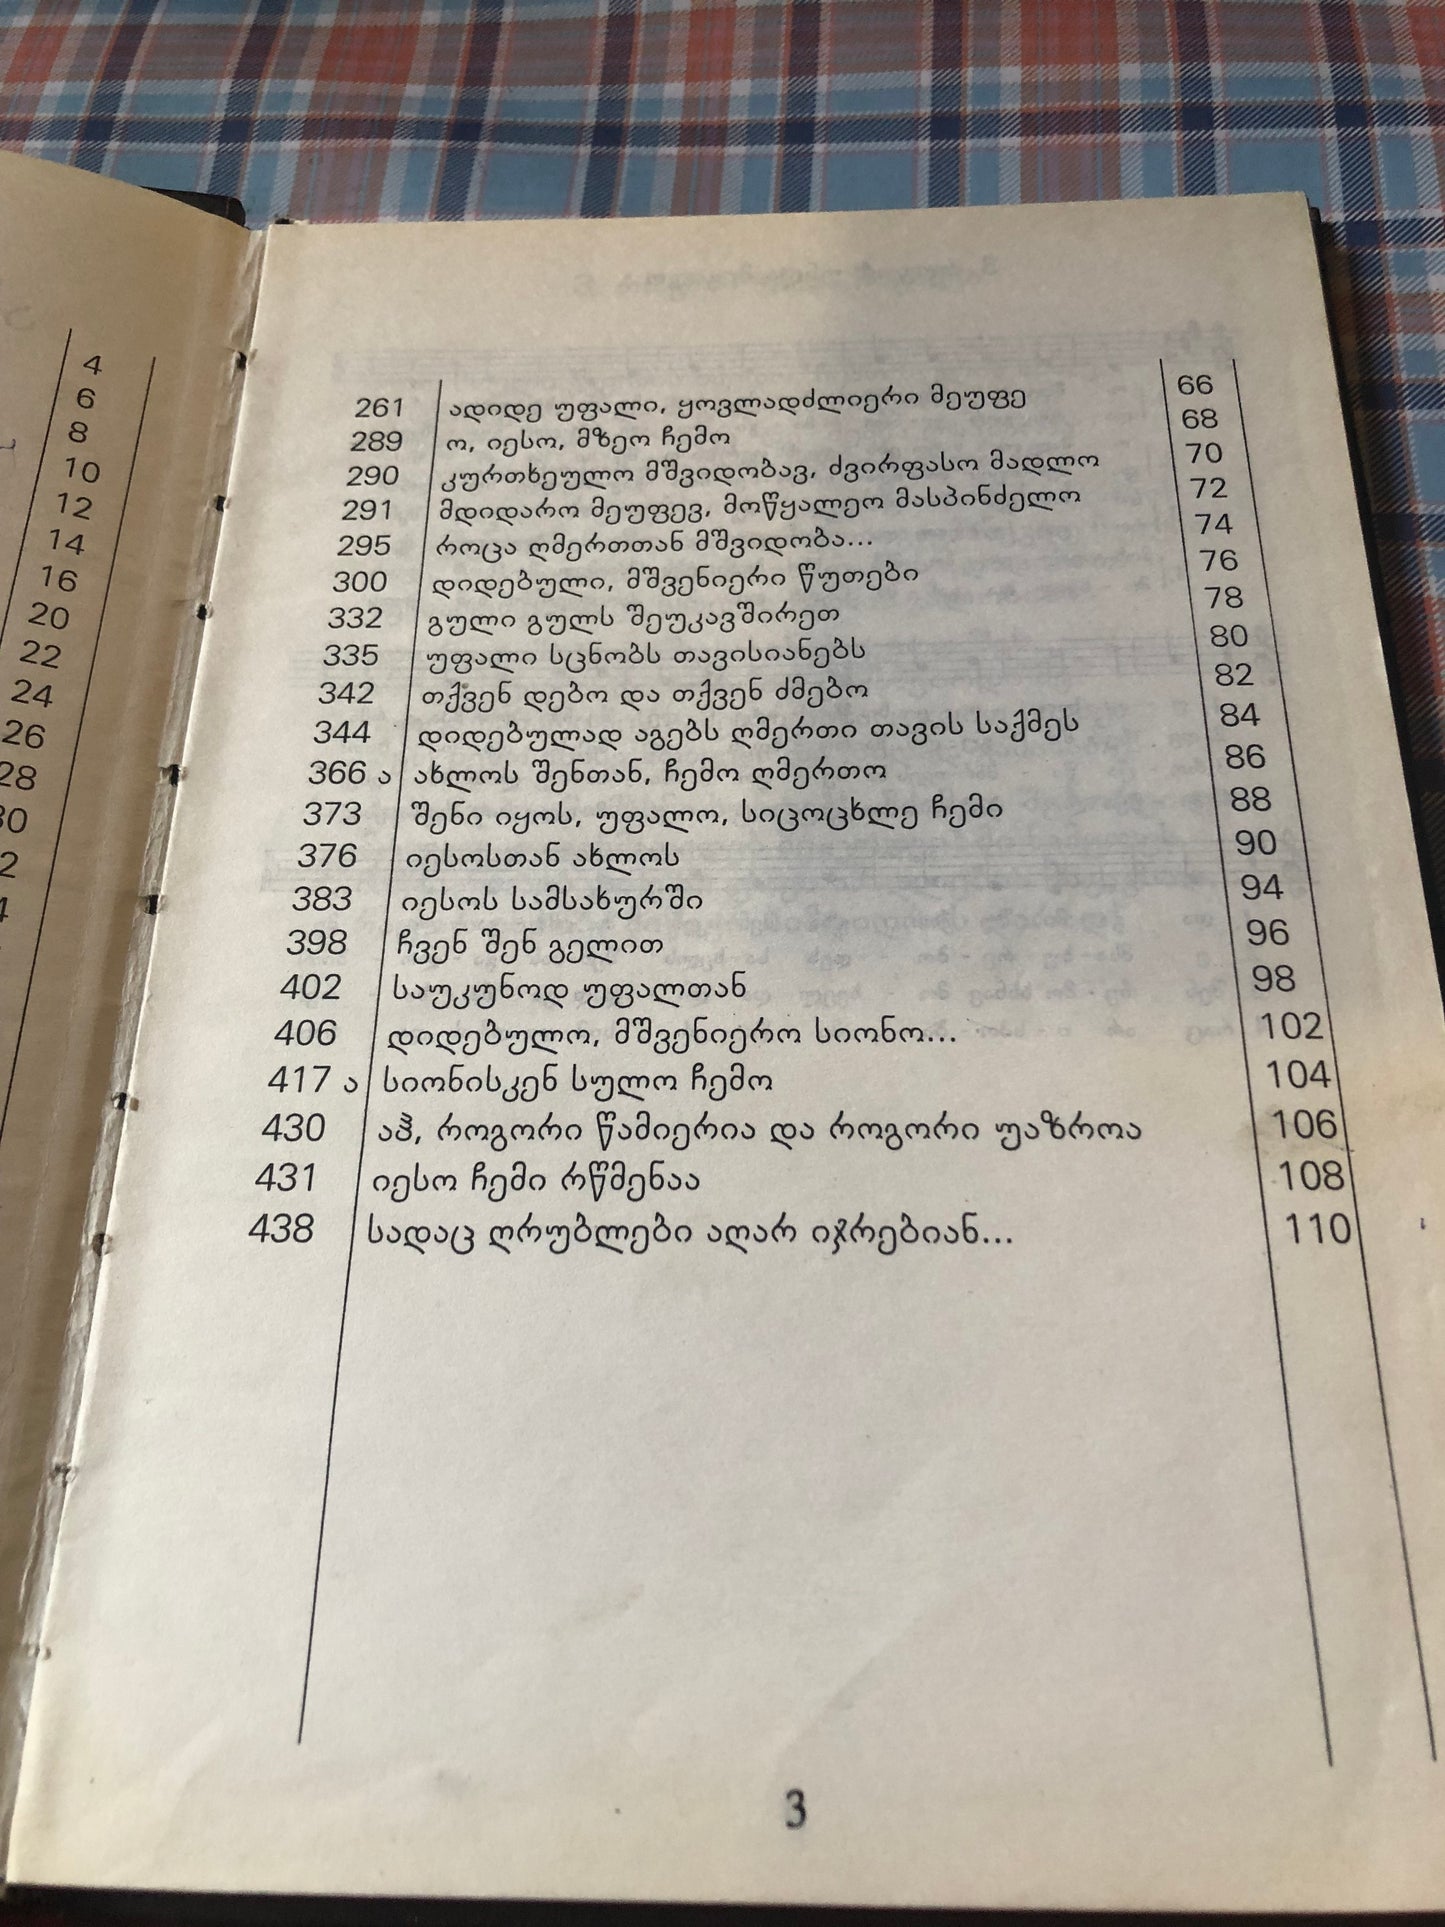 4
6
8
10
12
14
16
20
22
24
26
28
261 ადიდე უფალი, ყოვლადძლიერი მეუფე 66
289 ო, იესო, მზეო ჩემო 68
290 კურთხეულო მშვიდობავ, ძვირფასო მადლო 70
291 მდიდარო მეუფევ, მოწყალეო მასპინძელო 72
295 როცა ღმერთთან მშვიდობა... 74
300 დიდებული, მშვენიერი წუთები 76
332 გული გულს შეუკავშირეთ 78
335 უფალი სცნობს თავისიანებს 80
342 თქვენ დებო და თქვენ ძმებო 82
344 დიდებულად აგებს ღმერთი თავის საქმეს 84
366 ა ახლოს შენთან, ჩემო ღმერთო 86
373 შენი იყოს, უფალო, სიცოცხლე ჩემი 88
376 იესოსთან ახლოს 90
383 იესოს სამსახურში 94
398 ჩვენ შენ გელით 96
402 საუკუნოდ უფალთან 98
406 დიდებულო, მშვენიერო სიონო... 102
417 ა სიონისკენ სულო ჩემო 104
430 აჰ, როგორი წამიერია და როგორი უაზროა 106
431 იესო ჩემი რწმენაა 108
438 სადაც ღრუბლები აღარ იჯრებიან... 110
3